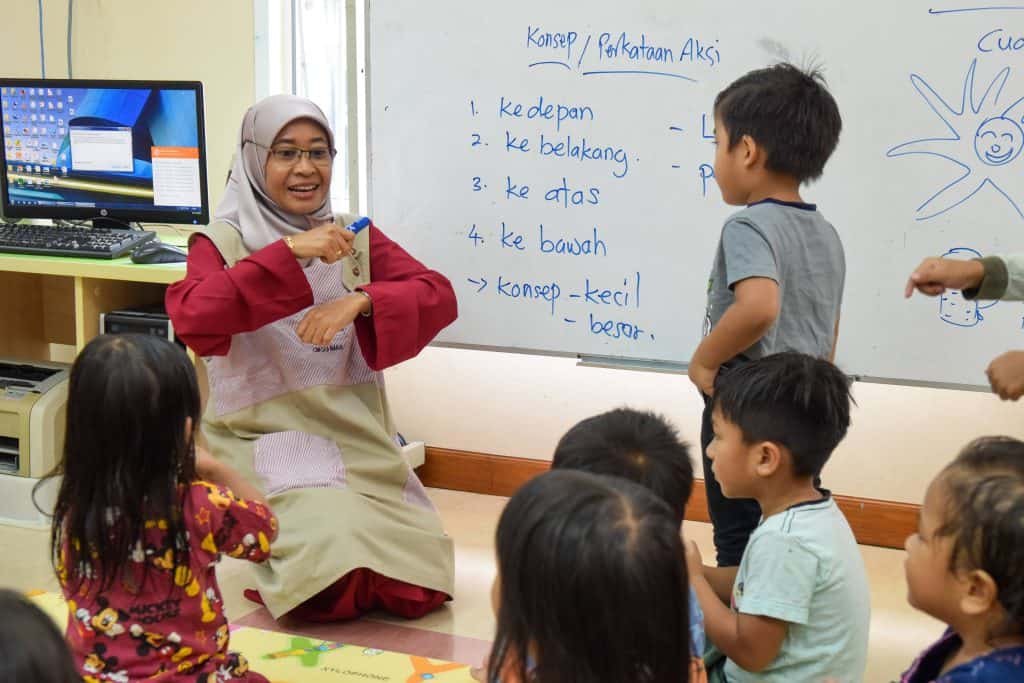 Konsep / Perkataan Aksi
1. ke depan
2. ke belakang.
3. ke atas
4. ke bawah
-> konsep - kecil
- besar.
MICKEY
MOUSE